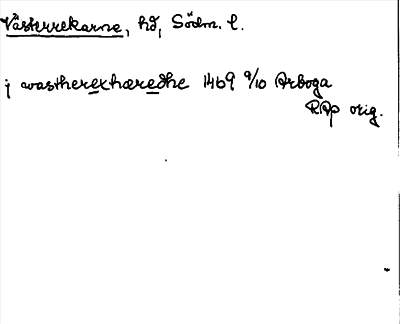 Västerrekarne, hd, Södm. l.
j wastherexhæredhe 1469 9/10 Arboga
RAp orig.